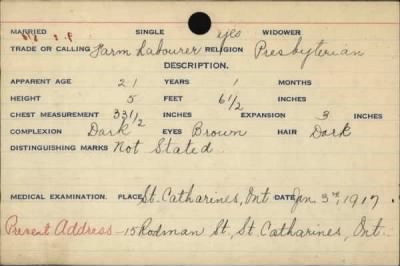 MARRIED SINGLE yes WIDOWER
TRADE OR CALLING Farm Labourer RELIGION Presbyterian
DESCRIPTION.
APPARENT AGE 21 YEARS 1 MONTHS
HEIGHT 5 FEET 6 1/2 INCHES
CHEST MEASUREMENT 33 1/2 INCHES EXPANSION 3 INCHES
COMPLEXION Dark EYES Brown HAIR Dark
DISTINGUISHING MARKS Not Stated
MEDICAL EXAMINATION. PLACE St. Catharines, Ont DATE Jan. 3rd, 1917
Present Address - 15 Rodman St., St. Catharines, Ont.